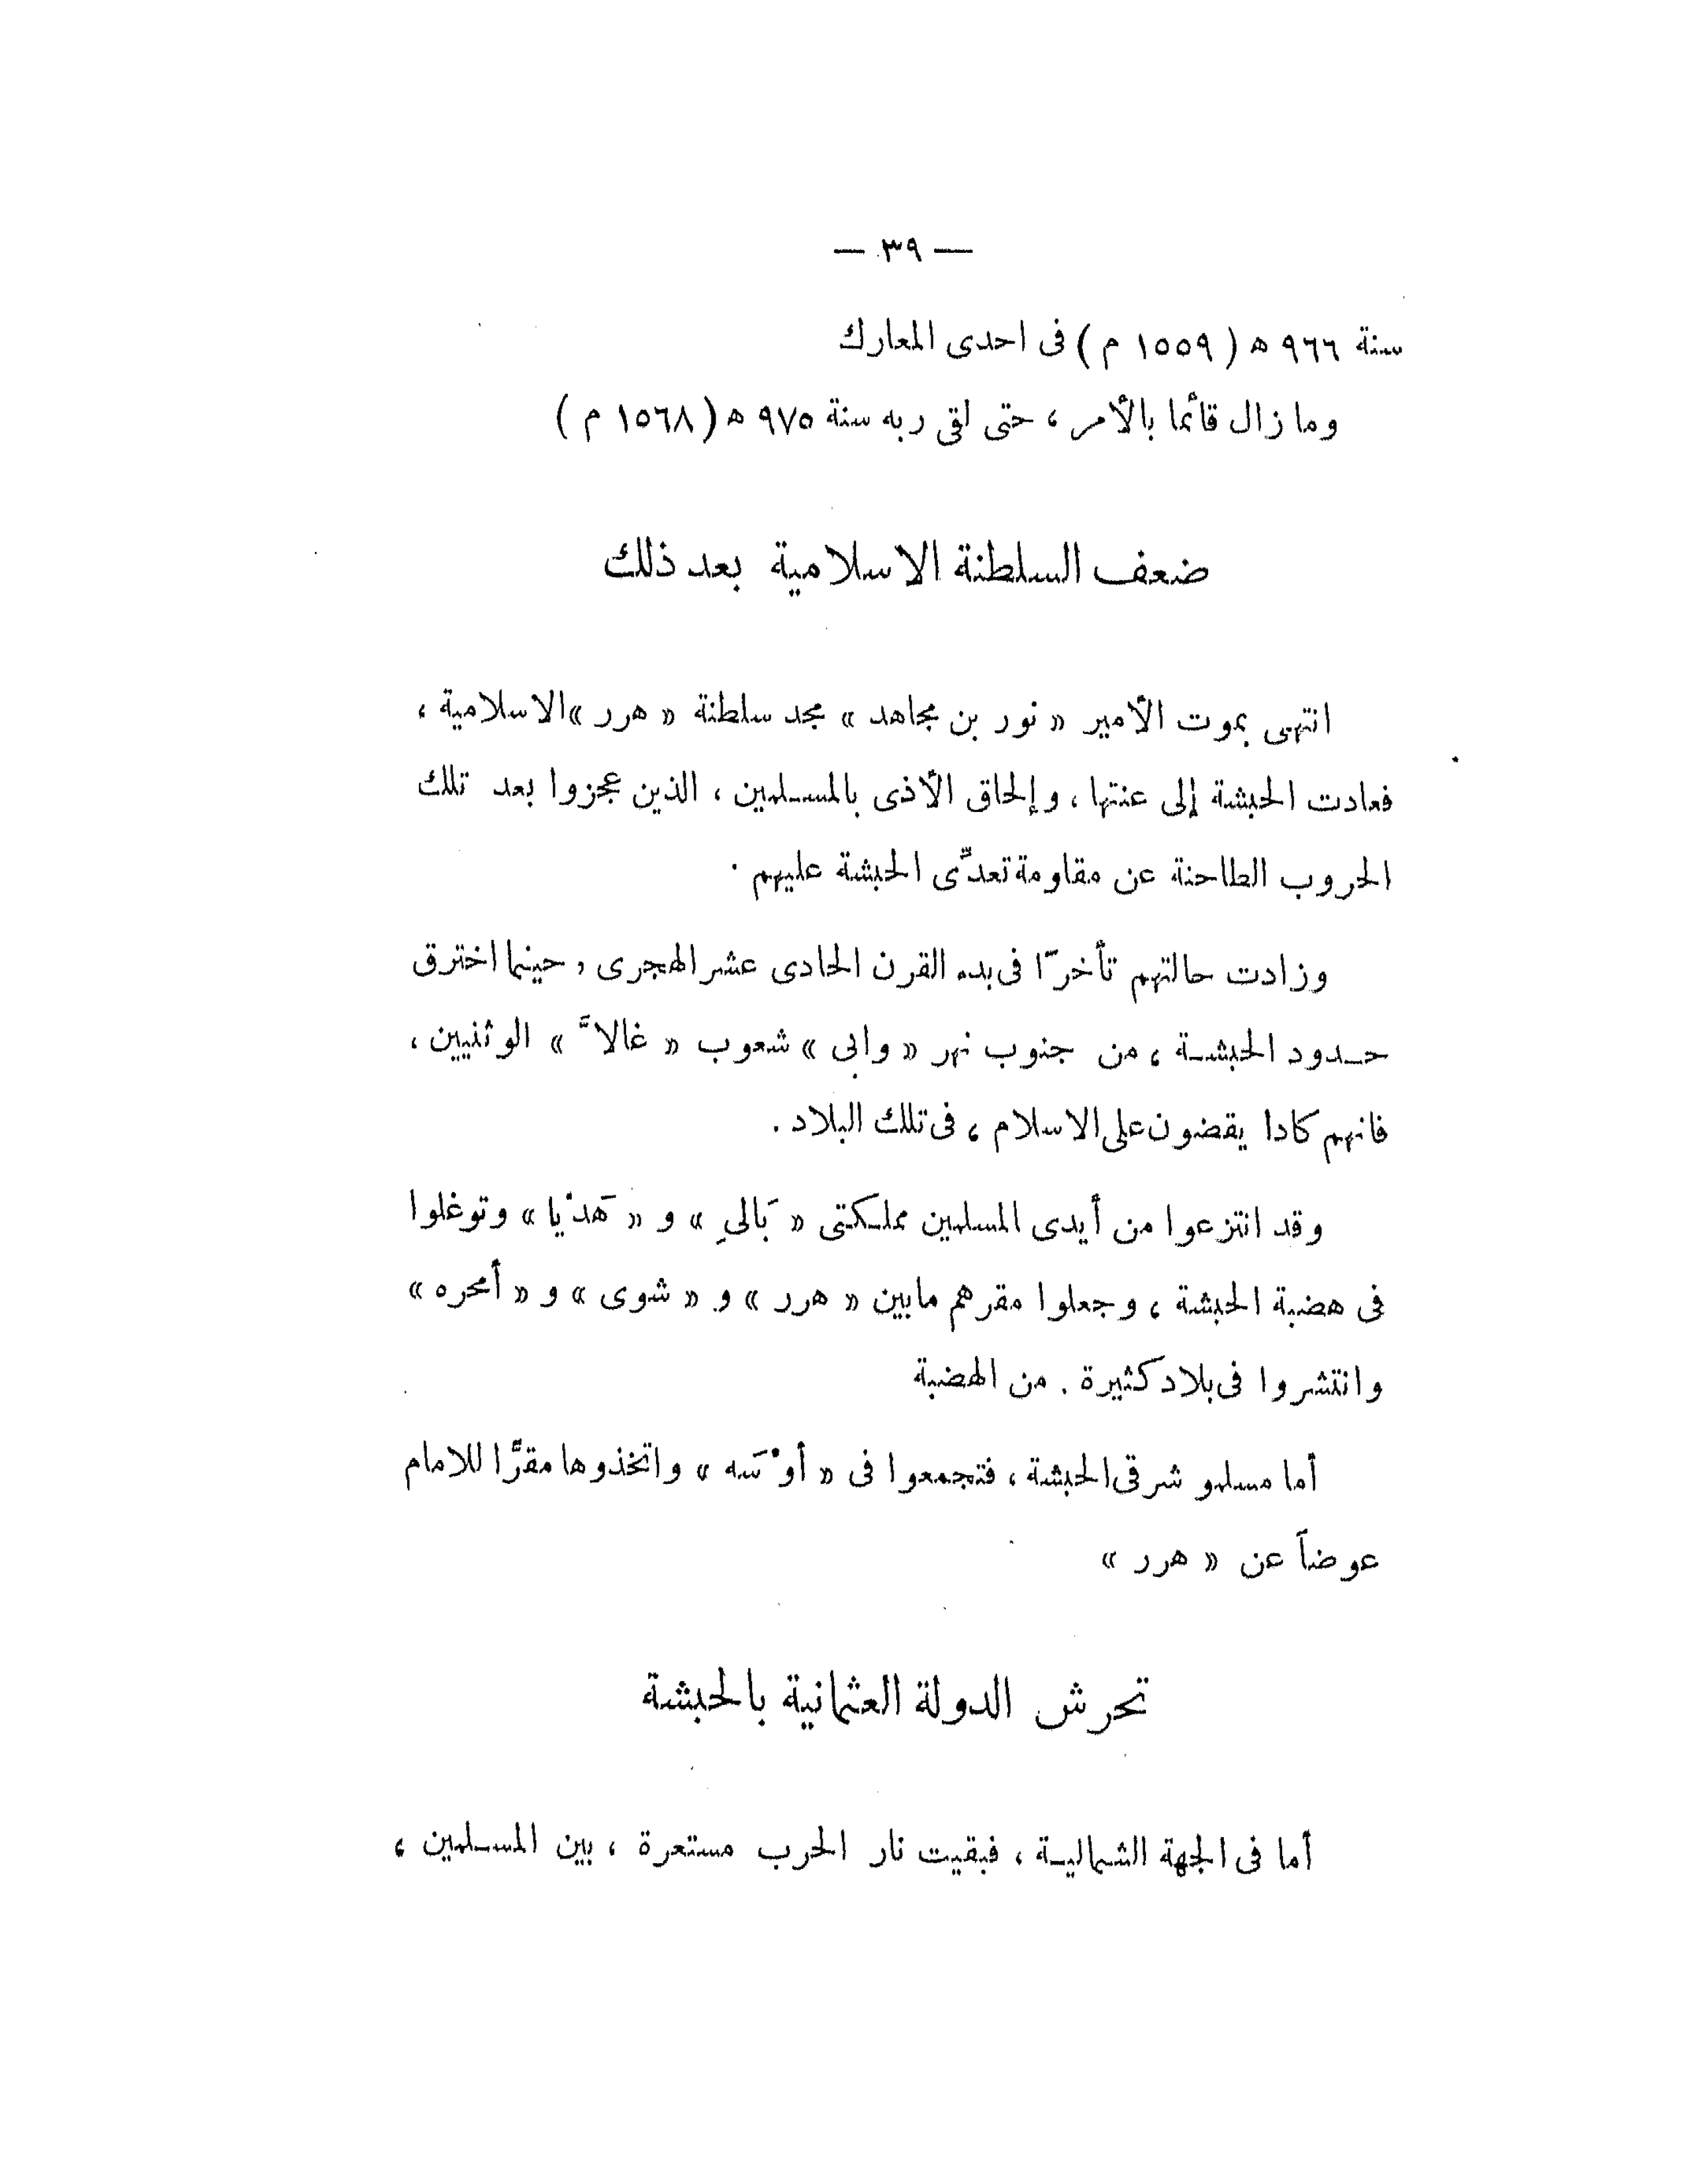 — ٣٩ —
سنة ٩٦٦ ه ( ١٥٥٩ م ) فى احدى المعارك
وما زال قائما بالأمر ، حتى لقى ربه سنة ٩٧٥ ه ( ١٥٦٨ م )
ضعف السلطنة الاسلامية بعد ذلك
انتهى بموت الأمير « نور بن مجاهد » مجد سلطنة « هرر » الاسلامية ،
فعادت الحبشة إلى عنتها ، وإلحاق الأذى بالمسلمين ، الذين عجزوا بعد تلك
الحروب الطاحنة عن مقاومة تعدِّى الحبشة عليهم .
وزادت حالتهم تأخرّا فى بدء القرن الحادى عشر الهجرى ، حينما اخترق
حدود الحبشة ، من جنوب نهر « وابى » شعوب « غالاَّ » الوثنيين ،
فانهم كادا يقضون على الاسلام ، فى تلك البلاد .
وقد انتزعوا من أيدى المسلمين مملكتى « بَالىِ » و « هَدْيا » وتوغلوا
فى هضبة الحبشة ، وجعلوا مقرهم مابين « هرر » و « شوى » و « أمحره »
وانتشروا فى بلاد كثيرة . من الهضبة
أما مسلمو شرقى الحبشة ، فتجمعوا فى « أوْسَه » واتخذوها مقرًّا للامام
عوضاً عن « هرر »
تحرش الدولة العثمانية بالحبشة
أما فى الجهة الشمالية ، فبقيت نار الحرب مستعرة ، بين المسلمين ،